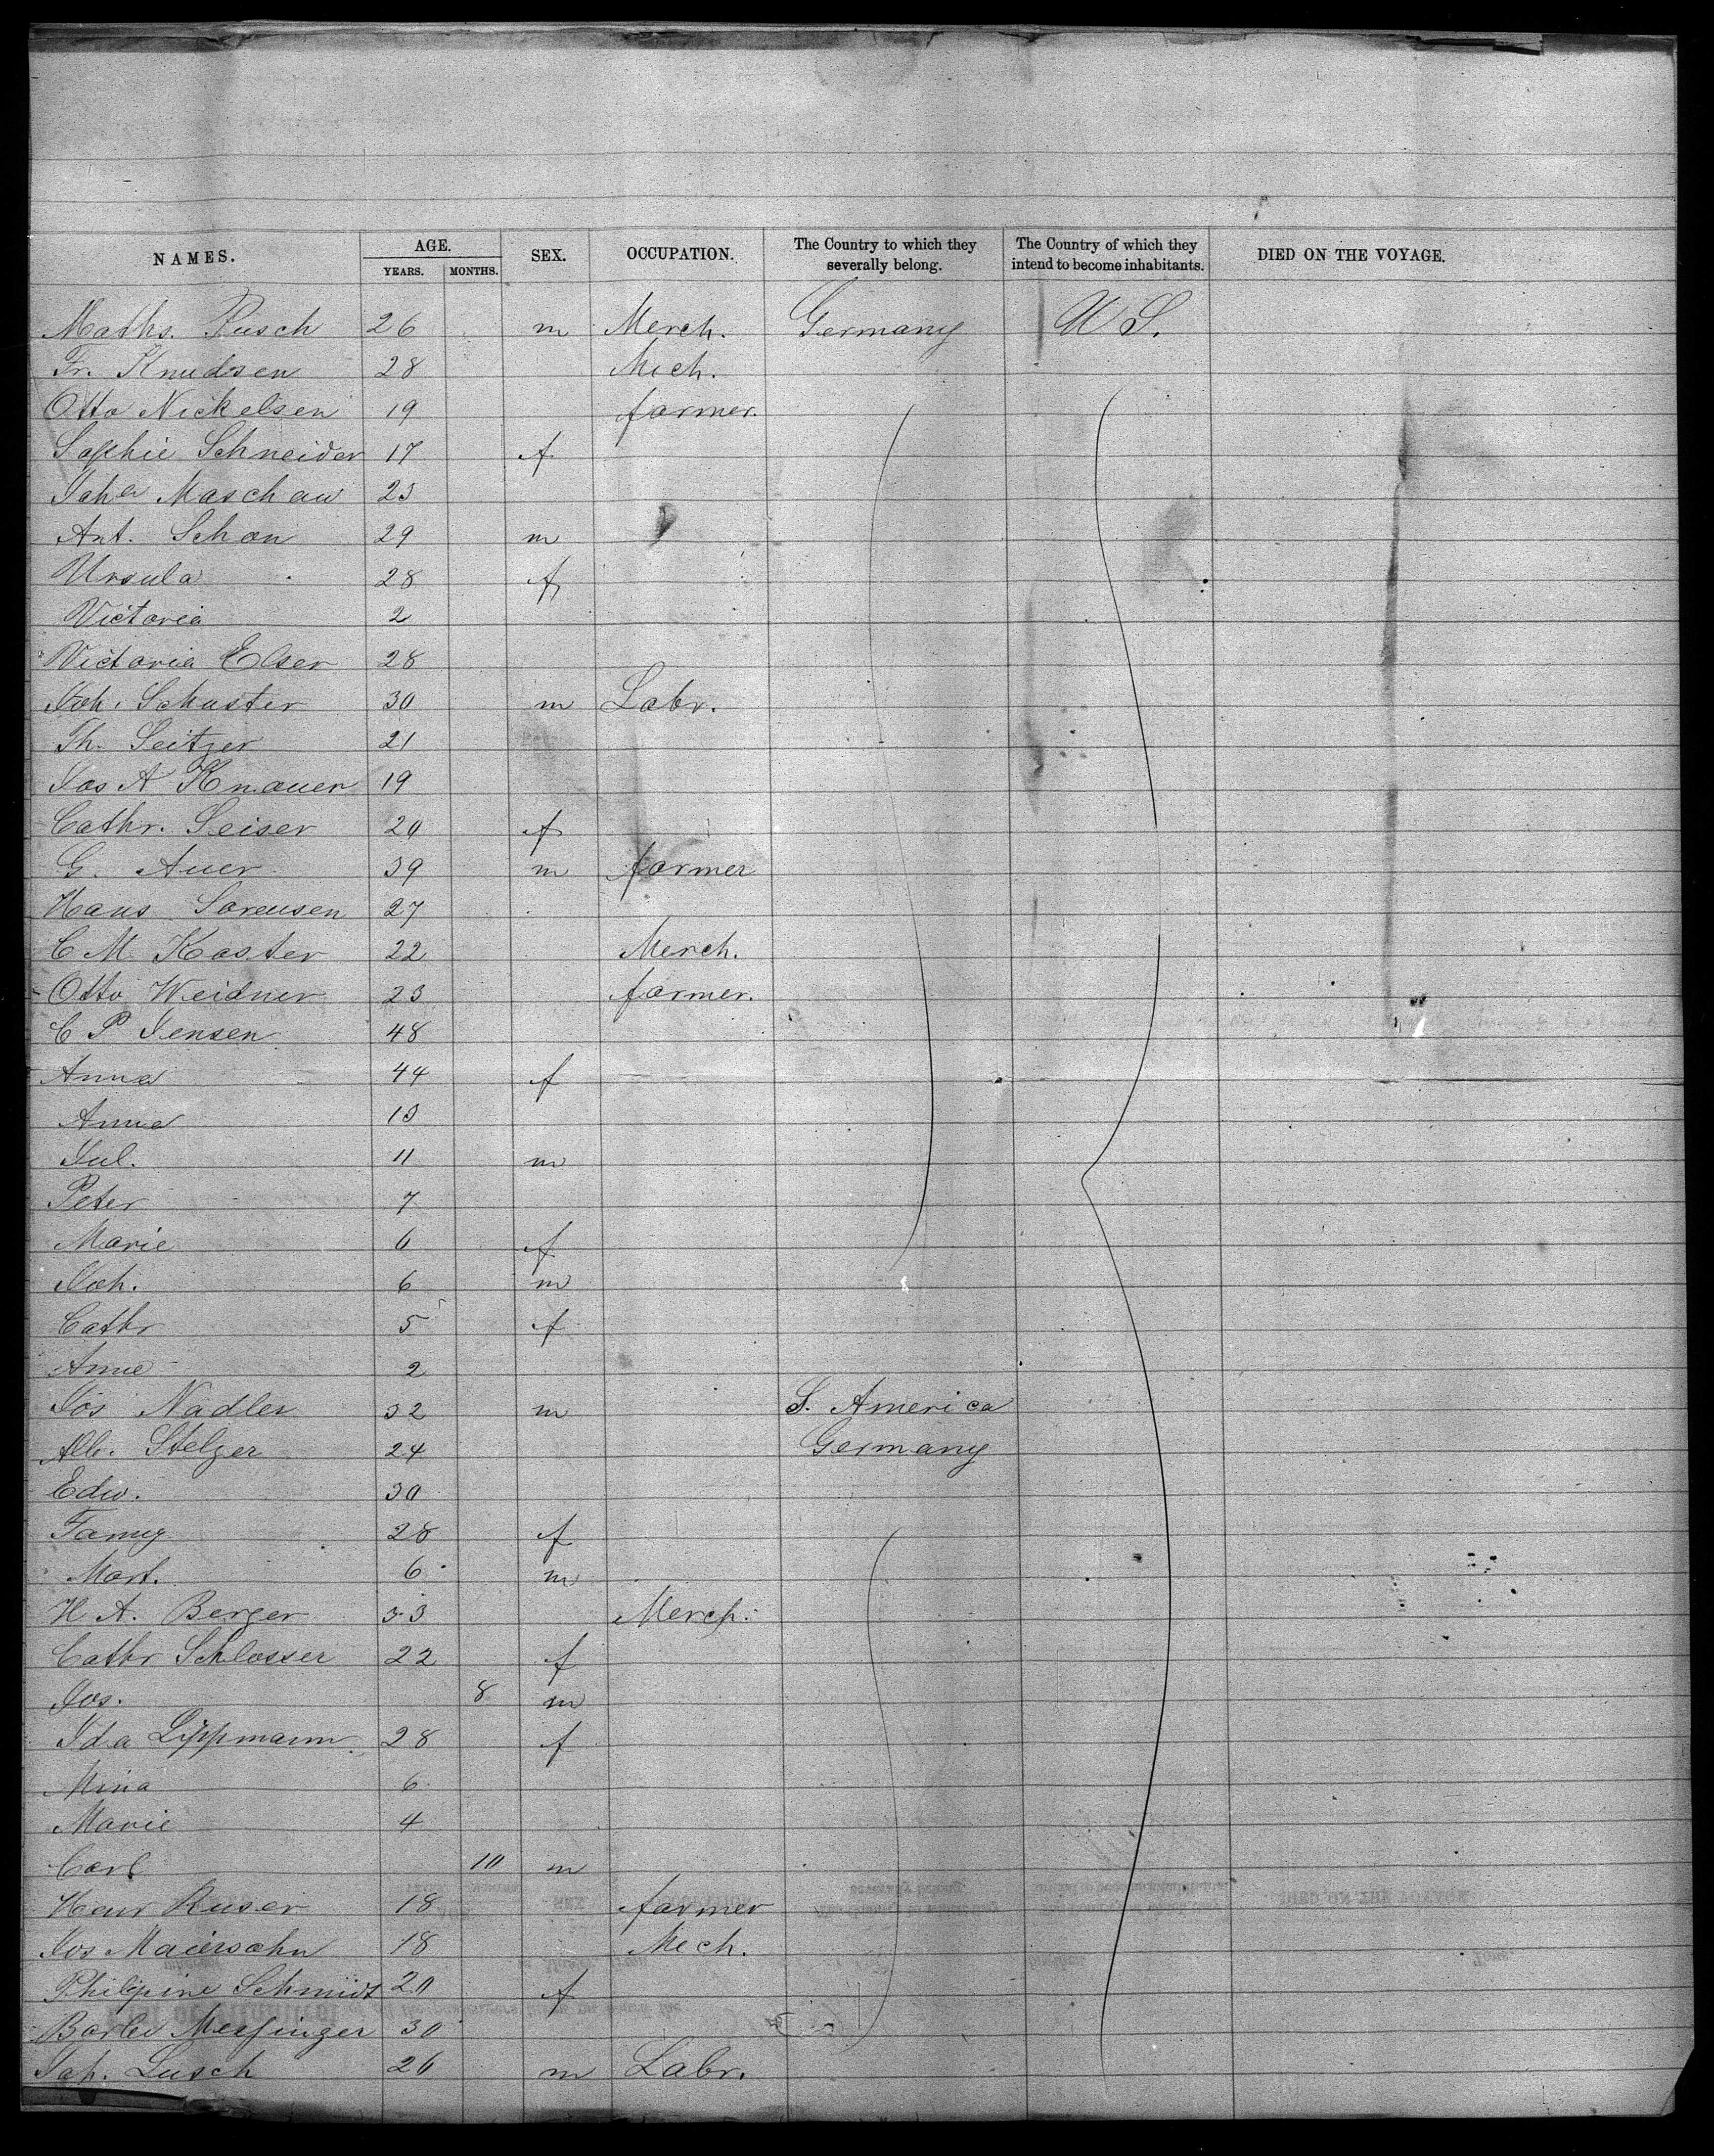 NAMES. AGE. SEX. OCCUPATION. The Country to which they severally belong. The Country of which they intend to become inhabitants. DIED ON THE VOYAGE.
YEARS. MONTHS.
Maths. Pusch 26 m Merch. Germany U S.
Fr. Knudsen 28 Mech.
Otto Nickelsen 19 farmer.
Sophie Schneider 17 f
Joha Maschau 23
Ant. Schon 29 m
Ursula 28 f
Victoria 2
Victoria Elser 28
Joh. Schuster 30 m Labr.
Th. Seitzer 21
Jos A Knauer 19
Cathr. Seiser 20 f
G. Auer 39 m farmer
Hans Sorensen 27
C M Koster 22 Merch.
Otto Weidner 23 farmer.
C P Jensen 48
Anna 44 f
Anna 13
Jul. 11 m
Peter 7
Marie 6 f
Joh. 6 m
Cathr 5 f
Anne 2
Jos Nadler 32 m S. America
Alb. Stelzer 24 Germany
Edw. 30
Fanny 28 f
Mart. 6 m
H A. Berger 33 Merch.
Cathr Schlosser 22 f
Jos. 8 m
Ida Lippmann 28 f
Mina 6
Marie 4
Carl 10 m
Henr Ruser 18 farmer
Jos Maiersohn 18 Mech.
Philipine Schmidt 20 f
Barb. Messinger 30
Joh. Lusch 26 m Labr.